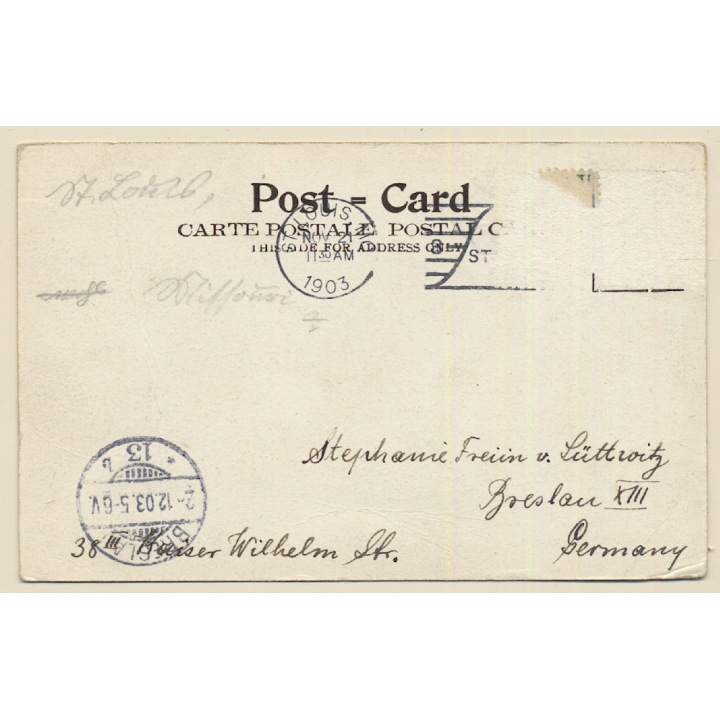 St. Louis,
Post = Card
CARTE POSTALE POSTAL C
THIS SIDE FOR ADDRESS ONLY.
ST. LOUIS, M
NOV 21
11 30 AM
1903
8
ST
Missouri
* 13 b
2-12.03.5-6V.
BRESLAU
Stephanie Freiin v. Lüttwitz
Breslau XIII
38 III Kaiser Wilhelm Str.
Germany